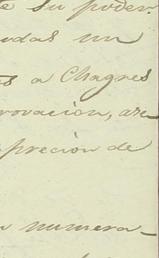 e su poder.
udas un
s a Chagres
rovacion, are
precion de
numera-